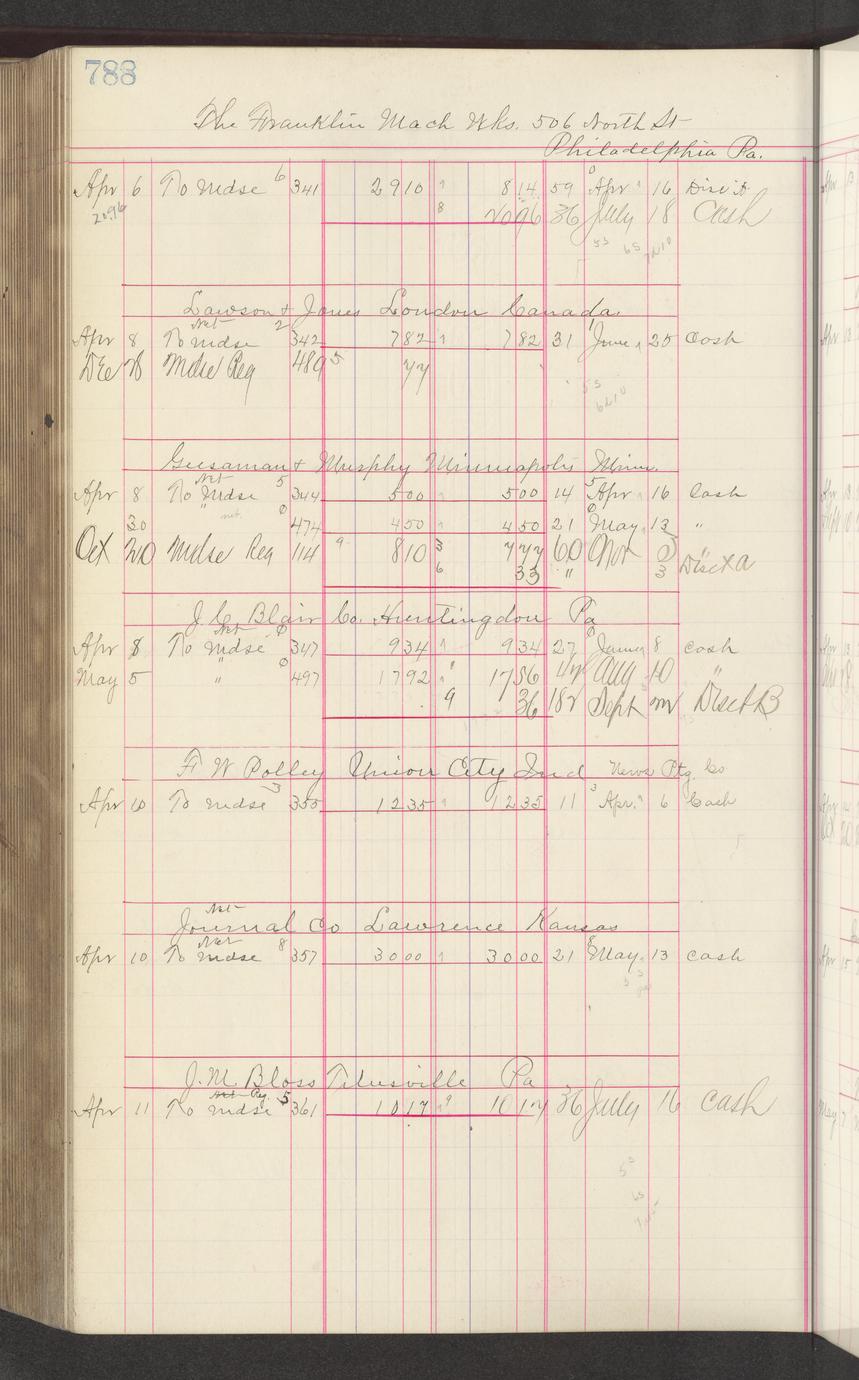 788
The Franklin Mach Wks. 506 North St
Philadelphia Pa.
Apr 6 To Mdse 6 341 2910 814 59 Apr 16 Disc't
2096 8 2096 36 July 18 Cash
Lawson & Jones London Canada
Net 2
Apr 8 To Mdse 342 782 782 31 June 25 Cash
Dec Mdse Reg 489 5 77
Geesaman & Murphy Minneapolis Minn.
Net 5
Apr 8 To Mdse 344 500 500 14 5 Apr 16 Cash
30 " net. 0 474 450 450 21 0 May 13 "
Oct 20 Mdse Reg 114 9 810 3 777 60 Nov 3 "
6 33 " 3 Disct A
J. C. Blair Co. Huntingdon Pa
Net 0
Apr 8 To Mdse 347 934 934 27 0 June 8 Cash
May 5 " 0 497 1792 1756 Aug 10 "
9 36 182 Sept Disct B
F W Polley Union City Ind News Ptg Co
Apr 10 To Mdse 3 355 1235 1235 11 3 Apr. 6 Cash
Net
Journal Co Lawrence Kansas
Net
Apr 10 To Mdse 8 357 3000 3000 21 8 May 13 Cash
J. M. Bloss Titusville Pa
Apr 11 To Mdse 5 361 1017 9 1017 36 July 16 Cash